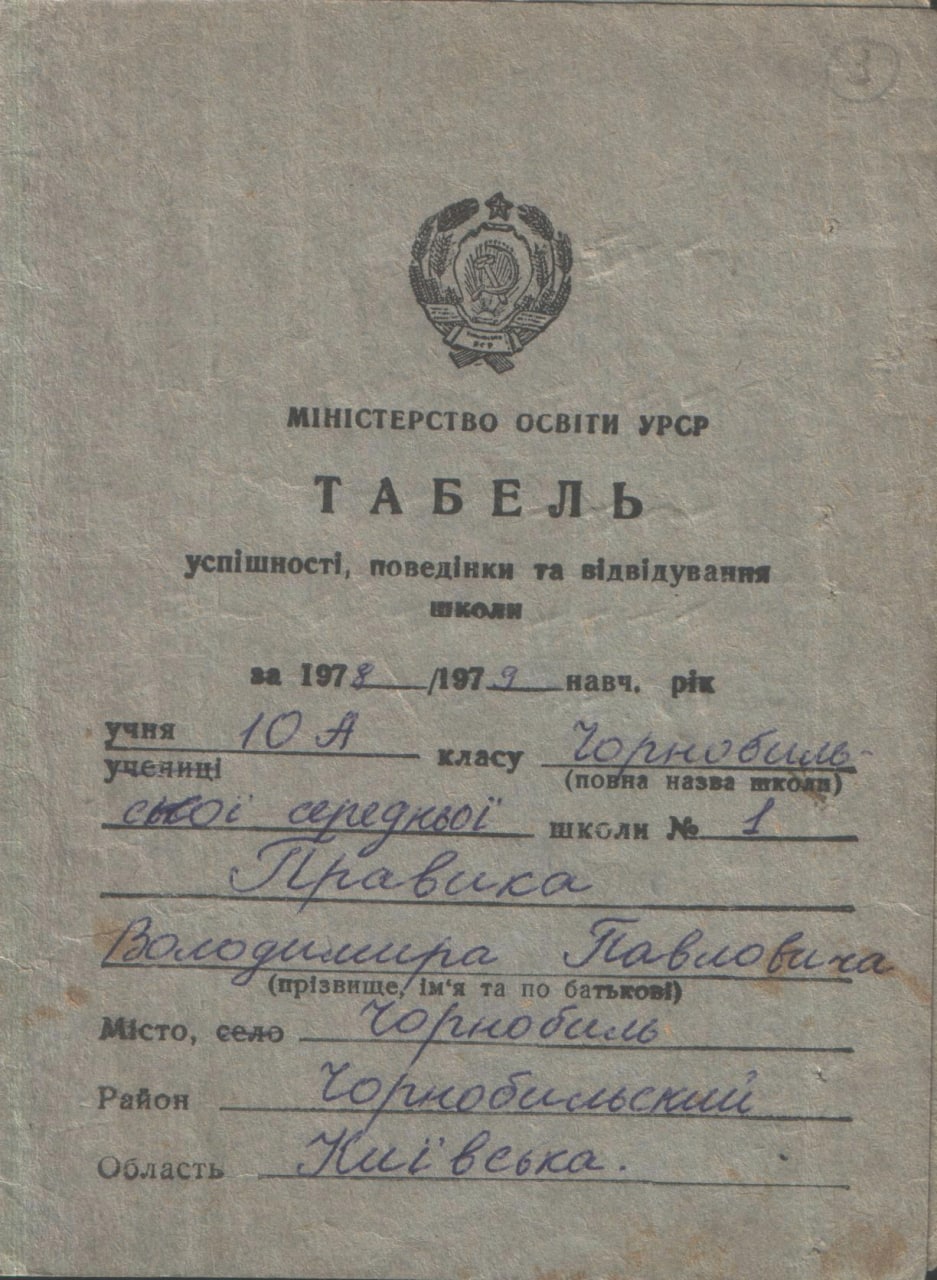 3
МІНІСТЕРСТВО ОСВІТИ УРСР
ТАБЕЛЬ
успішності, поведінки та відвідування
школи
за 1978/1979 навч. рік
учня 10 А класу Чорнобиль-
учениці (повна назва школи)
ської середньої школи № 1
Правика
Володимира Павловича
(прізвище, ім'я та по батькові)
Місто, село Чорнобиль
Район Чорнобильский
Область Київська.